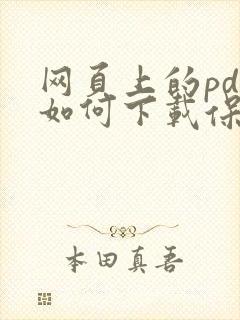 网页上的pd
如何下載保
本田真吾